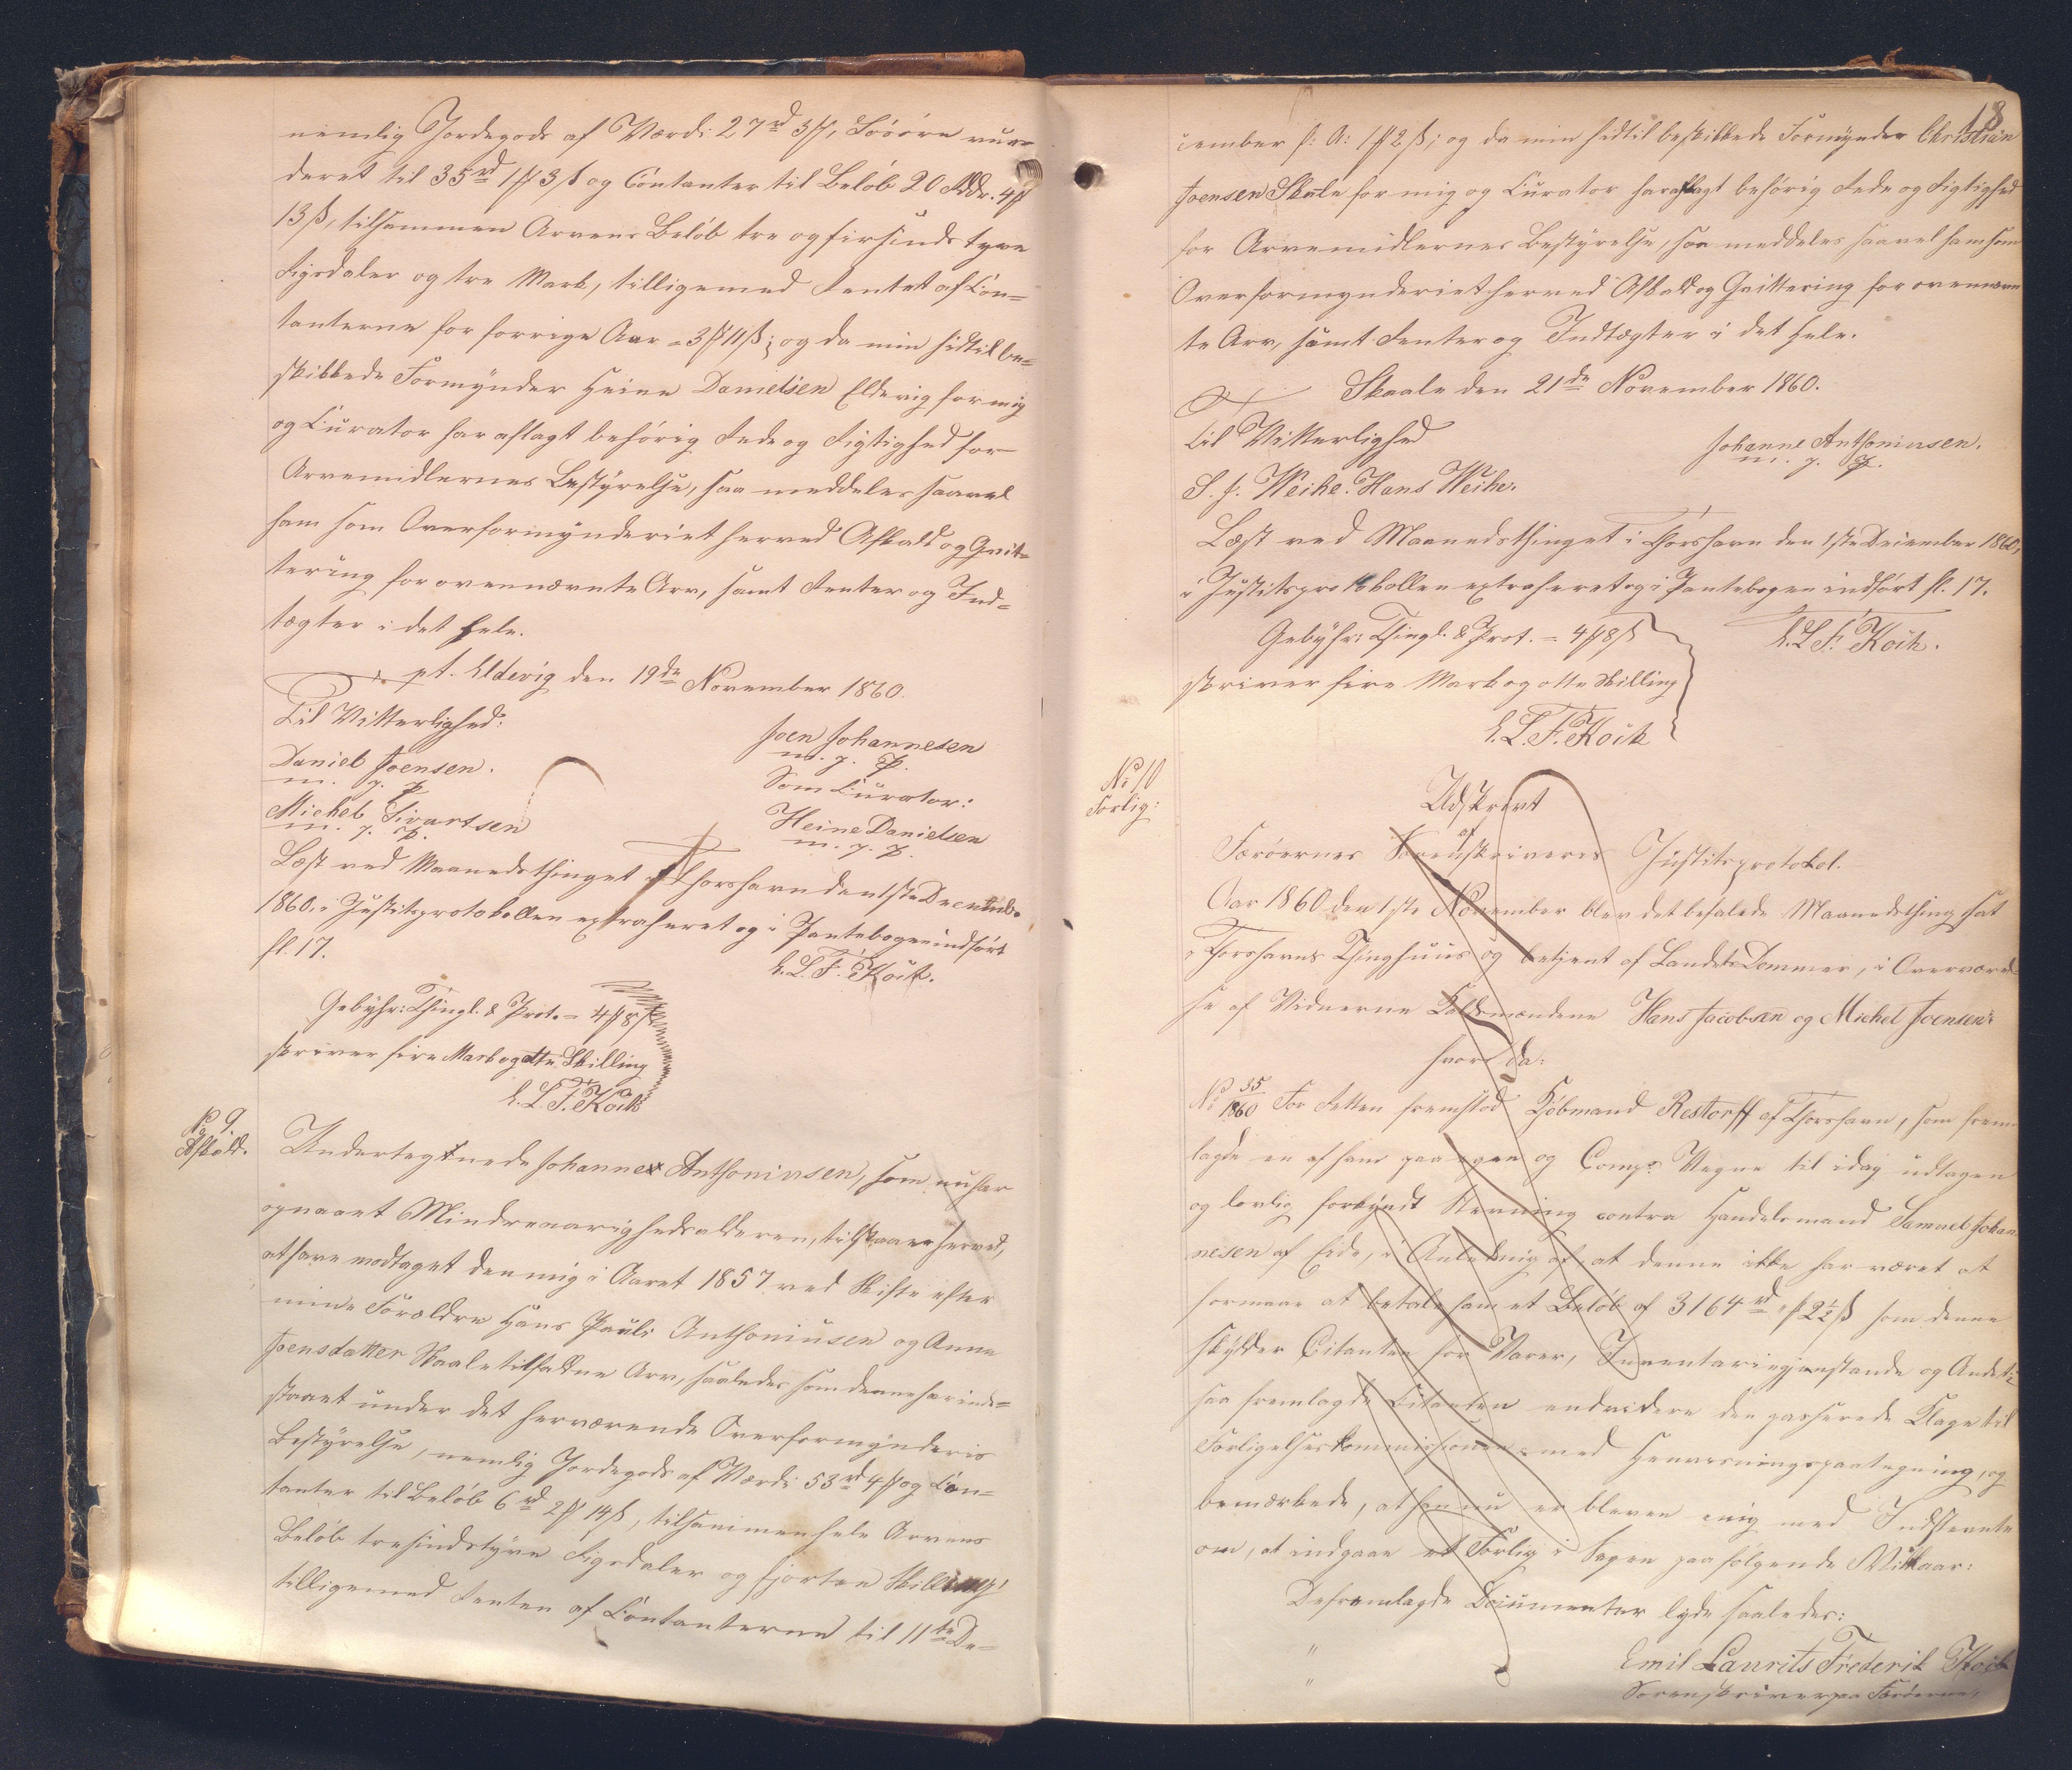 nemlig Jordegods af Værdi 27rd 3ꝭ, Løsøre vur=
deret til 35rd 1ꝭ 3ß og Contanter til Beløb 20 Rdr. 4ꝭ
13ß, tilsammen Arvens Beløb tre og firsindstyve
Rigsdaler og tre Mark, tilligemed Renten af Con=
tanterne for forrige Aar = 3ꝭ 11ß; og da min hidtil be=
skikkede Formynder Heine Danielsen Eldevig for mig
og Curator har aflagt behørig Rede og Rigtighed for
Arvemidlernes Bestyrelse, saa meddeles saavel
ham som Overformynderiet herved Afkald og Qvit=
tering for ovennævnte Arv, samt Renter og Ind=
tægter i det Hele.
pt. Eldevig den 19de November 1860.
Til Vitterlighed:
Joen Johannesen
m. p. P.
Daniel Joensen.
m. p. P.
Som Curator:
Michel Sivartsen
m. p. P.
Heine Danielsen
m. p. P.
Læst ved Maanedsthinget i Thorshavn den 1ste Decemb.
1860, i Justitsprotokollen extraheret og i Pantebogen indført
fl. 17.
E. L. F. Koch.
Gebyhr: Thingl. & Prot. = 4ꝭ 8ß
skriver fire Mark og otte Skilling
E. L. F. Koch
No 9.
Afkald.
Undertegnede Johanne Anthoniusen, som nu har
opnaaet Mindreaarighedsalderen, tilstaaer herved,
at have modtaget den mig i Aaret 1857 ved Skifte efter
mine Forældre Hans Pauli Anthoniusen og Anna
Joensdatter Skaale tilfaldne Arv, saaledes som denne har inde=
staaet under det herværende Overformynderis
Bestyrelse, nemlig Jordegods af Værdi 53rd 4ꝭ og Con=
tanter til Beløb 6rd 2ꝭ 14ß, tilsammen hele Arvens
Beløb tresindstyve Rigsdaler og fjorten Skilling,
tilligemed Renten af Contanterne til 11te De=
13
cember f. A: 1ꝭ 2ß; og da min hidtil beskikkede Formynder Christian
Joensen Skale for mig og Curator har aflagt behørig Rede og Rigtighed
for Arvemidlernes Bestyrelse, saa meddeles saavel ham som
Overformynderiet herved Afkald og Qvittering for ovennævn
te Arv, samt Renter og Indtægter i det Hele.
Skaale den 21de November 1860.
Til Vitterlighed
Johanne Anthoniusen.
m. p. P.
S. J. Weihe. Hans Weihe.
Læst ved Maanedsthinget i Thorshavn den 1ste December 1860,
i Justitsprotokollen extraheret og i Pantebogen indført fl. 17.
Gebyhr: Thingl. & Prot. = 4ꝭ 8ß
E. L. F. Koch.
skriver fire Mark og otte Skilling
E. L. F. Koch
No 10
Forlig:
Udskrivt
af
Færøernes Sorenskriveris Justitsprotokol.
Aar 1860 den 1ste November blev det befalede Maanedsthing sat
i Thorshavns Thinghuus og betjent af Landets Dommer, i Overværel
se af Vidnerne Koldmændene Hans Jacobsen og Michel Joensen:
hvor da:
No 35/1860 For Retten fremstod Kjøbmand Restorff af Thorshavn, som frem
lagde en af ham paa egen og Comps. Vegne til idag udtagen
og lovlig forkyndt Stevning contra Handelsmand Samuel Johan
nesen af Eide, i Anledning af, at denne ikke har været at
formaae at betale ham et Beløb af 3164rd "ꝭ 2½ß som denne
skylder Citanten for Varer, Inventariigjenstande og Andet;
saa fremlagde Citanten endvidere den passerede Klage til
Forligelseskommissionen med Henviisningspaategning, og
bemærkede, at han nu er bleven enig med Indstevnte
om, at indgaae et Forlig i Sagen paa følgende Vilkaar:
De fremlagde Documenter lyde saaledes:
"
Emil Laurits Frederik Koch
"
Sorenskriver paa Færøerne,